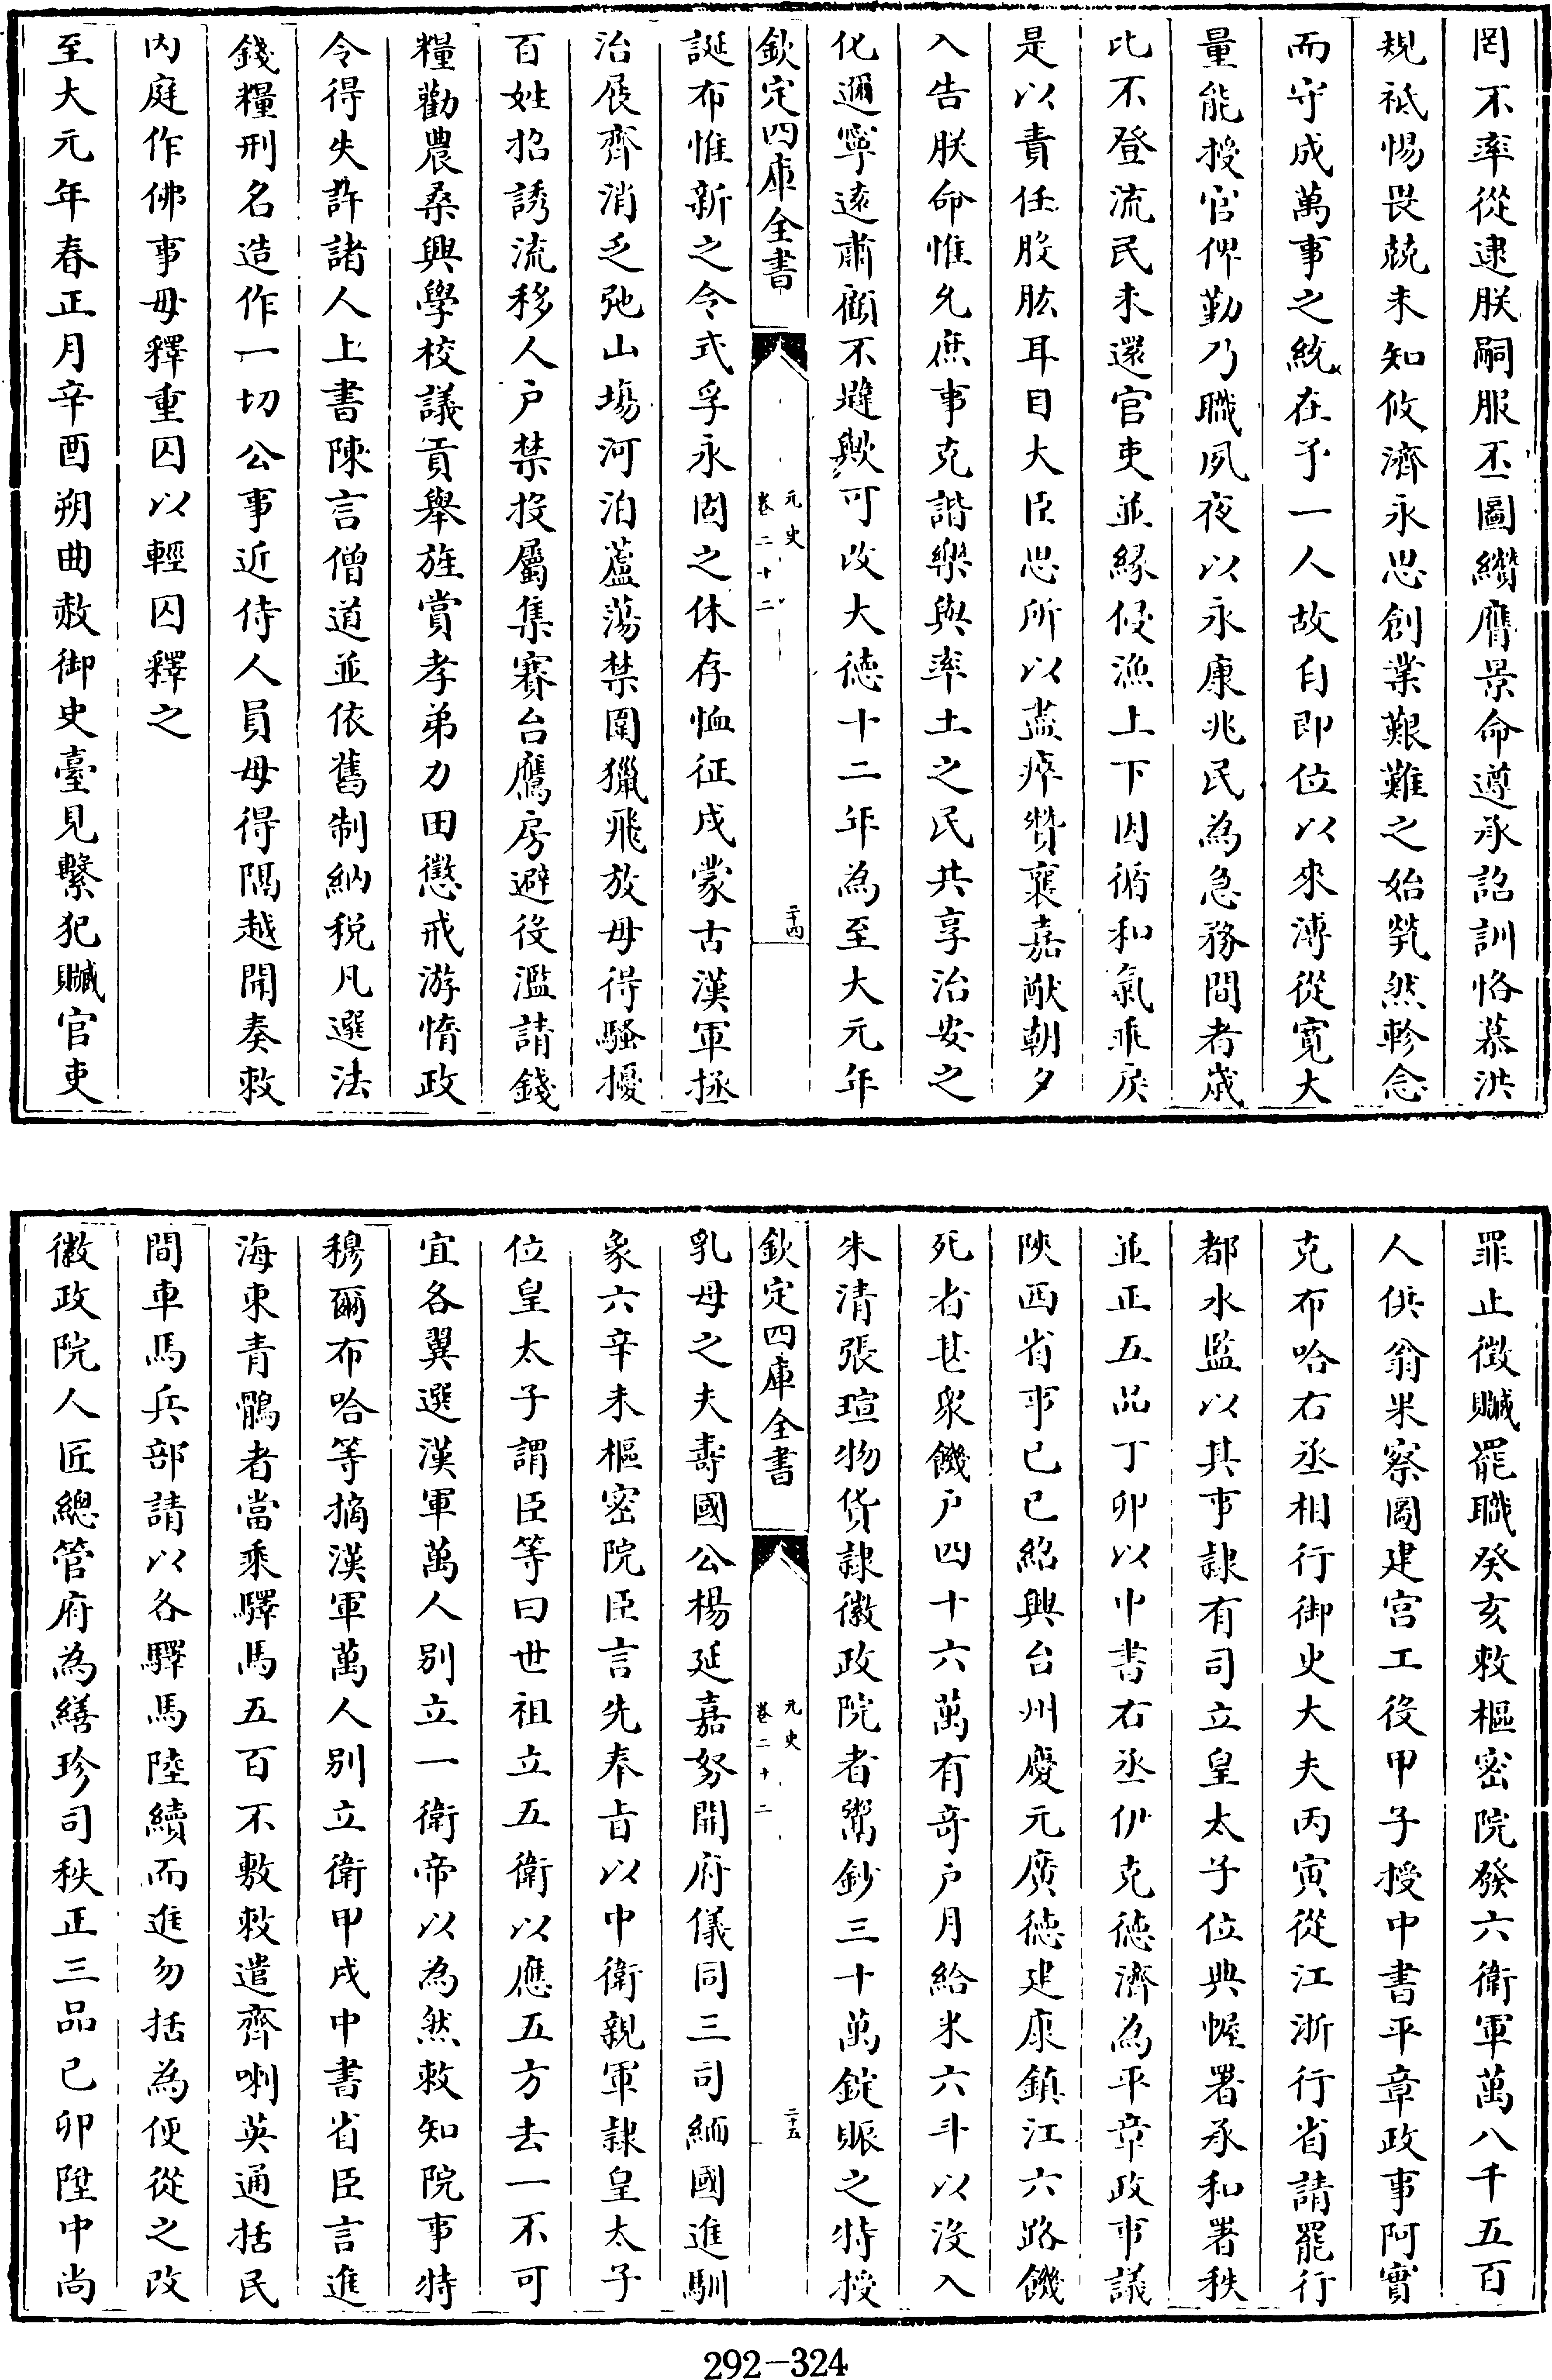 罔不率從逮朕嗣服丕圖纘膺景命遵承詔訓恪慕洪
規祗惕畏兢未知攸濟永思創業艱難之始煢然軫念
而守成萬事之統在予一人故自即位以來溥從寛大
量能授官俾勤乃職夙夜以永康兆民為急務間者歳
比不登流民未還官吏並縁侵漁上下因循和氣乖戾
是以責任股肱耳目大臣思所以盡瘁贊襄嘉猷朝夕
入告朕命惟允庶事克諧樂與率土之民共享治安之
化邇寧遠肅顧不韙歟可改大徳十二年為至大元年
欽定四庫全書
元史
卷二十二
二十四
誕布惟新之令式孚永固之休存恤征戍蒙古漢軍拯
治展齊消乏弛山場河泊蘆蕩禁圍獵飛放毋得騷擾
百姓招誘流移人户禁投屬集賽台鷹房避役濫請錢
糧勸農桑興學校議貢舉旌賞孝弟力田懲戒游惰政
令得失許諸人上書陳言僧道並依舊制納税凡選法
錢糧刑名造作一切公事近侍人員毋得隔越聞奏敕
内庭作佛事毋釋重囚以輕囚釋之
至大元年春正月辛酉朔曲赦御史臺見繫犯贓官吏
罪止徴贓罷職癸亥敕樞密院發六衛軍萬八千五百
人供翁果察圖建宫工役甲子授中書平章政事阿實
克布哈右丞相行御史大夫丙寅從江浙行省請罷行
都水監以其事隷有司立皇太子位典幄署承和署秩
並正五品丁卯以中書右丞伊克徳濟為平章政事議
陜西省事己巳紹興台州慶元廣徳建康鎮江六路饑
死者甚衆饑户四十六萬有奇户月給米六斗以没入
朱清張瑄物貨隷徽政院者鬻鈔三十萬錠賑之特授
欽定四庫全書
元史
卷二十二
二十五
乳母之夫壽國公楊延嘉努開府儀同三司緬國進馴
象六辛未樞密院臣言先奉㫖以中衛親軍隷皇太子
位皇太子謂臣等曰世祖立五衛以應五方去一不可
宜各翼選漢軍萬人别立一衛帝以為然敕知院事特
穆爾布哈等摘漢軍萬人别立衛甲戌中書省臣言進
海東青鶻者當乘驛馬五百不敷敕遣齊喇英通括民
間車馬兵部請以各驛馬陸續而進勿括為便從之改
徽政院人匠總管府為繕珍司秩正三品己卯陞中尚
292-324